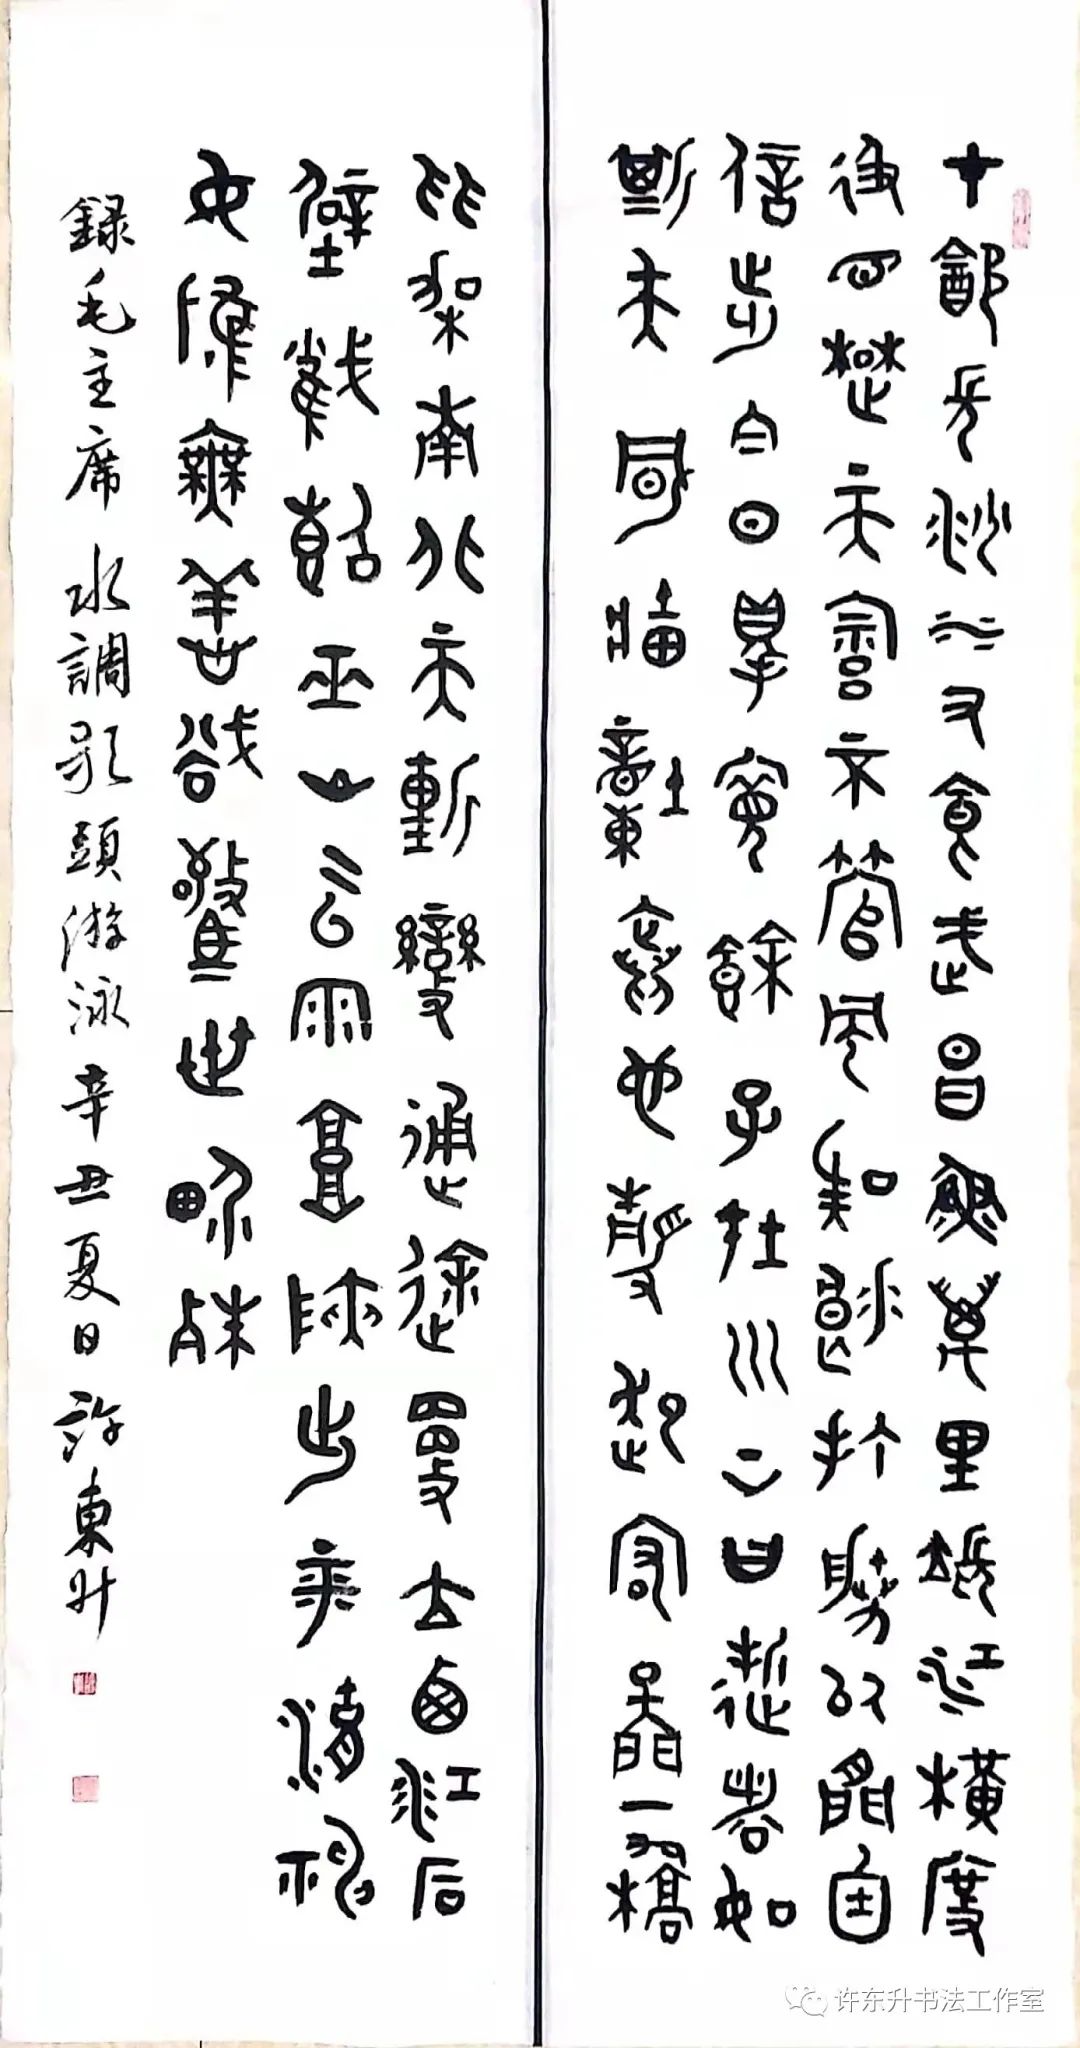 十飲長沙水又食武昌魚萬里長江橫度
極目楚天舒不管風吹浪打勝似閒庭
信步今日得寬餘子在川上曰逝者如
斯夫風檣動龜蛇靜起宏圖一橋
飛架南北天塹變通途更立西江石
壁截斷巫山雲雨高峽出平湖神
女應無恙當驚世界殊
録毛主席水調歌頭游泳辛丑夏日許東升
许东升书法工作室